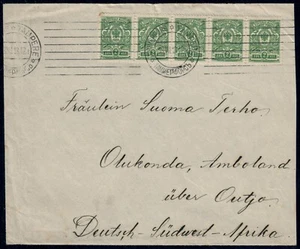 Fräulein Suoma Terho,
Olukonda, Amboland
über Outjo,
Deutsch-Südwest-Afrika.